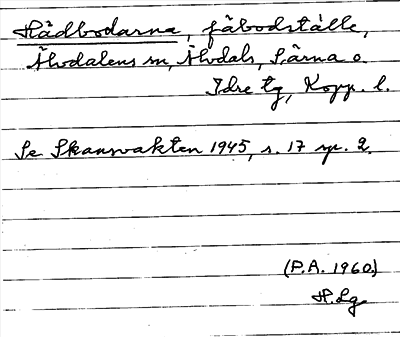 Rådbodarna, fäbodställe,
Älvdalens sn, Älvdals, Särna o.
Idre tg, Kopp. l.
Se Skansvakten 1945, s. 17 sp. 2.
(P.A. 1960)
H.Lg